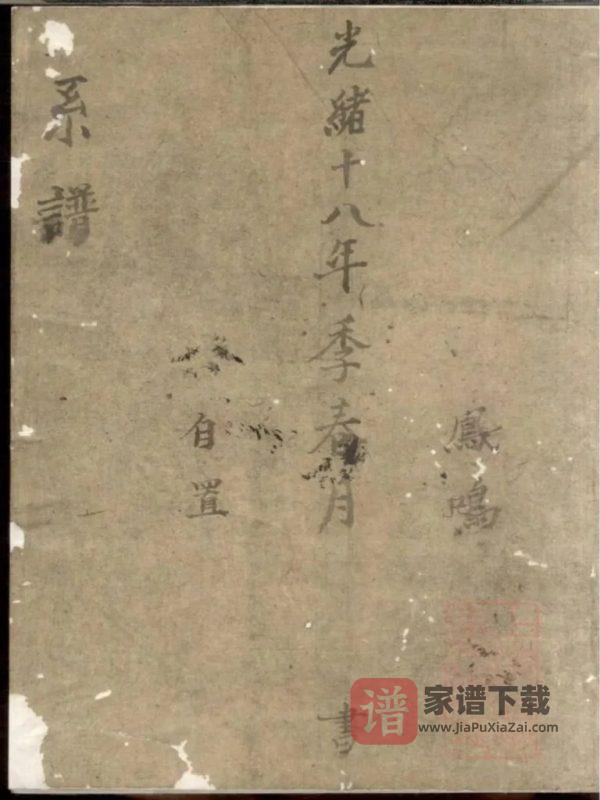 鳳鳴
光緒十八年季春月
書
自置
系譜
家谱下载
www.JiaPuXiaZai.com
谱